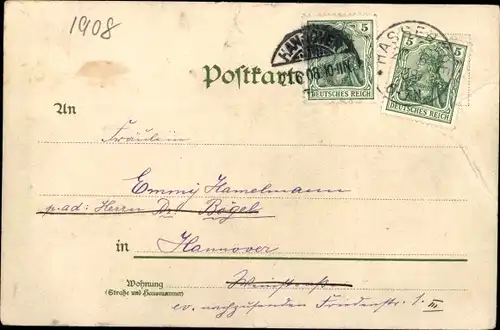 1908
HANNOVER
Postkarte
5 5
DEUTSCHES REICH
5 5
DEUTSCHES REICH
An
Fräulein
Emmy Hamelmann
p. ad: Herrn Bögel
in Hannover
Wohnung
(Straße und Hausnummer)
ev. nachzusenden Friedenstr. 1. III